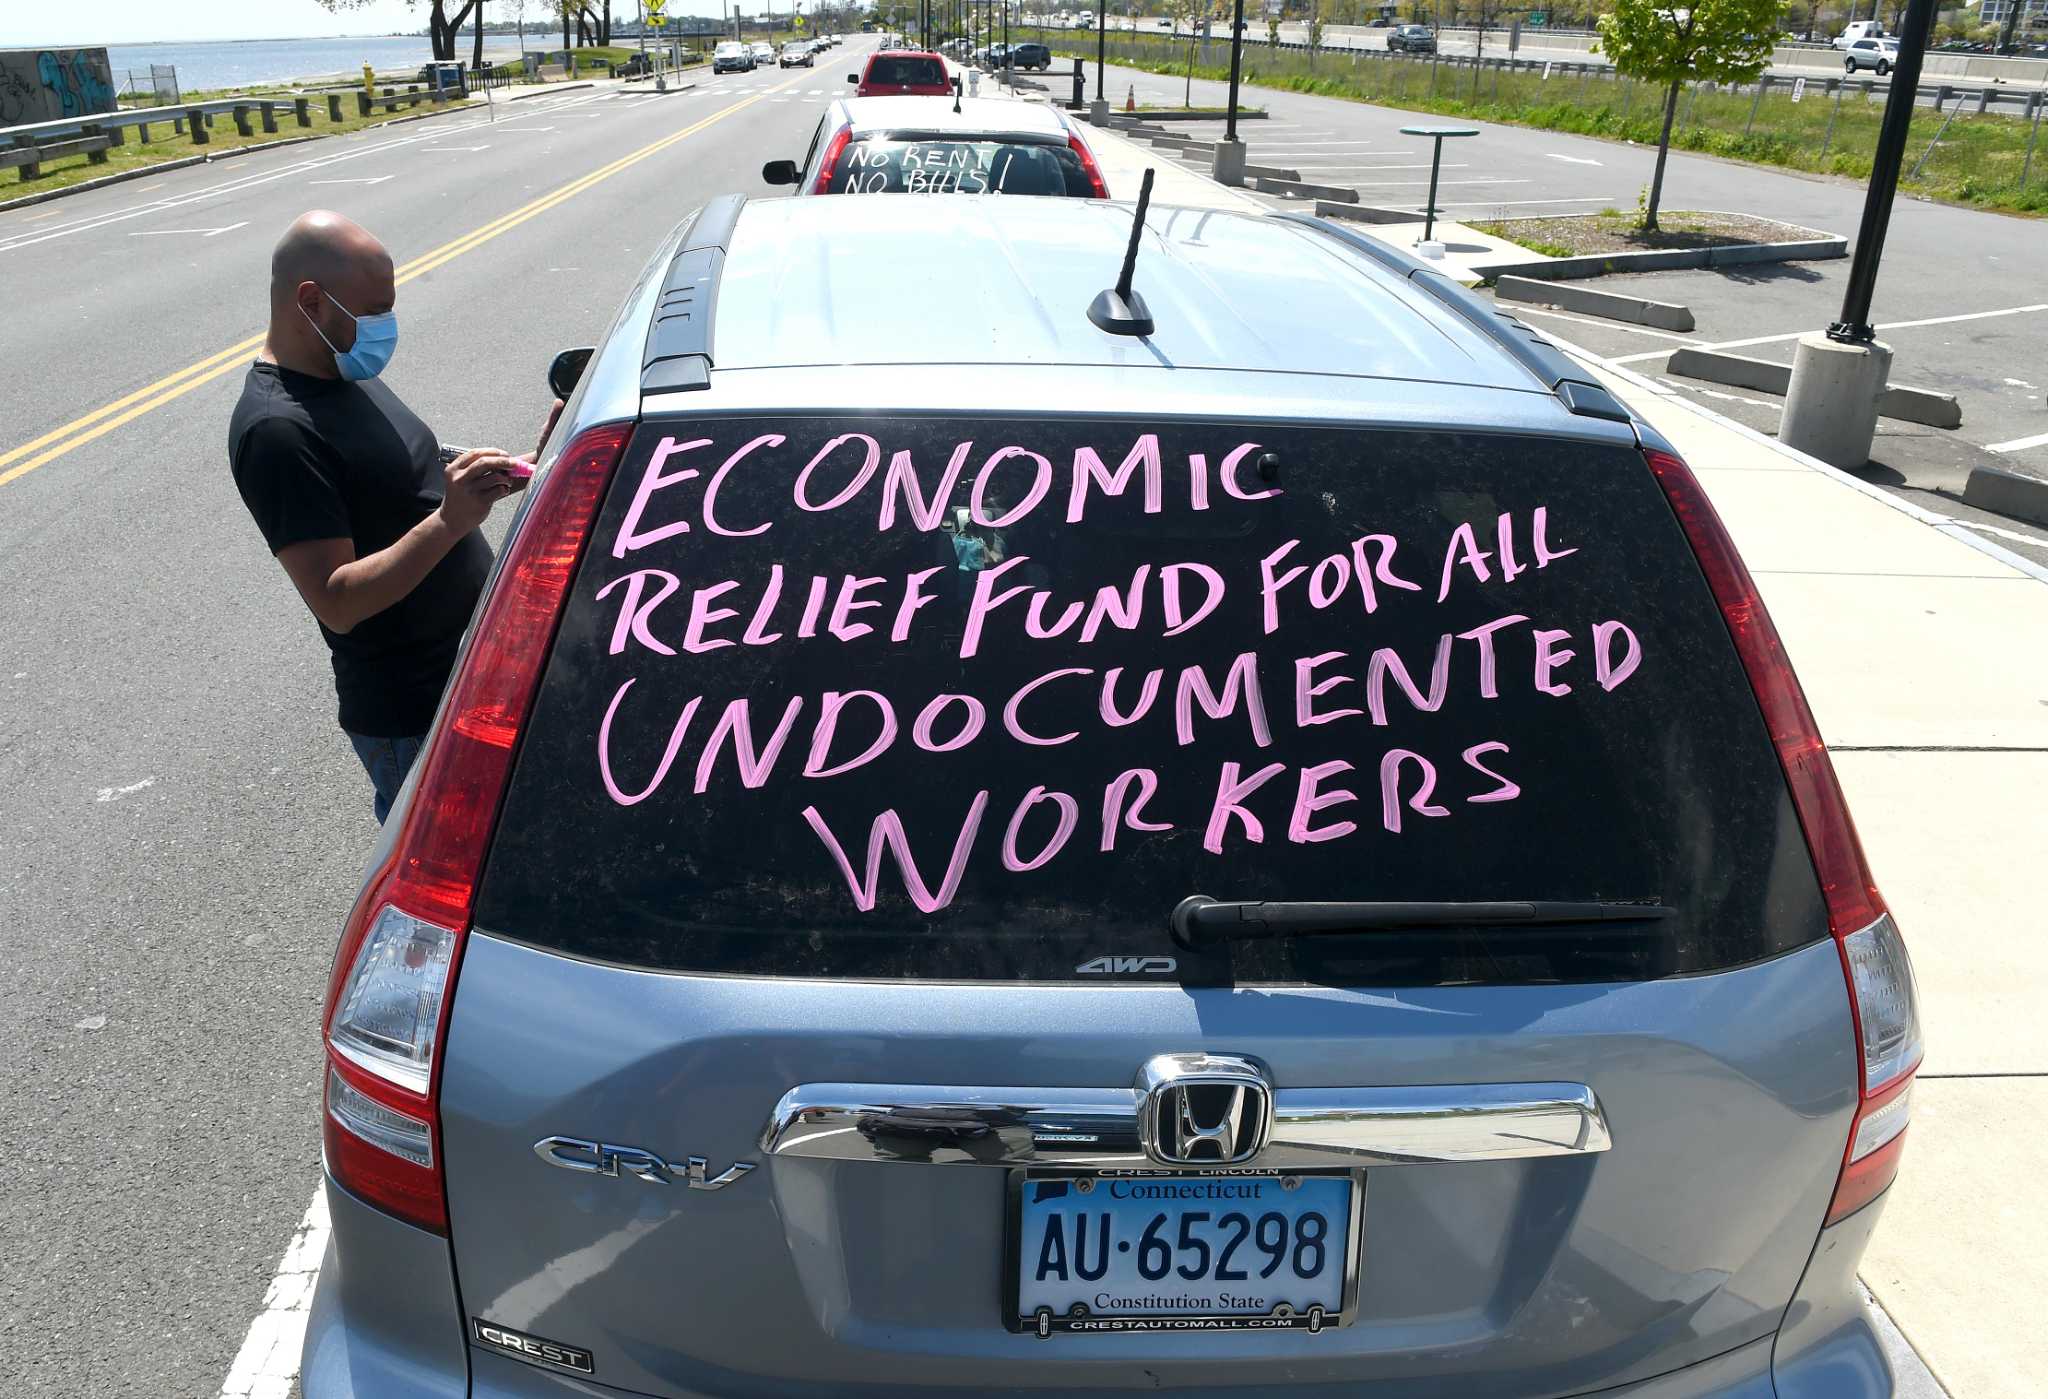 NO RENT
NO BILLS!
ECONOMIC
RELIEF FUND FOR ALL
UNDOCUMENTED
WORKERS
AWD
CR-V
CREST LINCOLN
Connecticut
AU·65298
Constitution State
CRESTAUTOMALL.COM
CREST